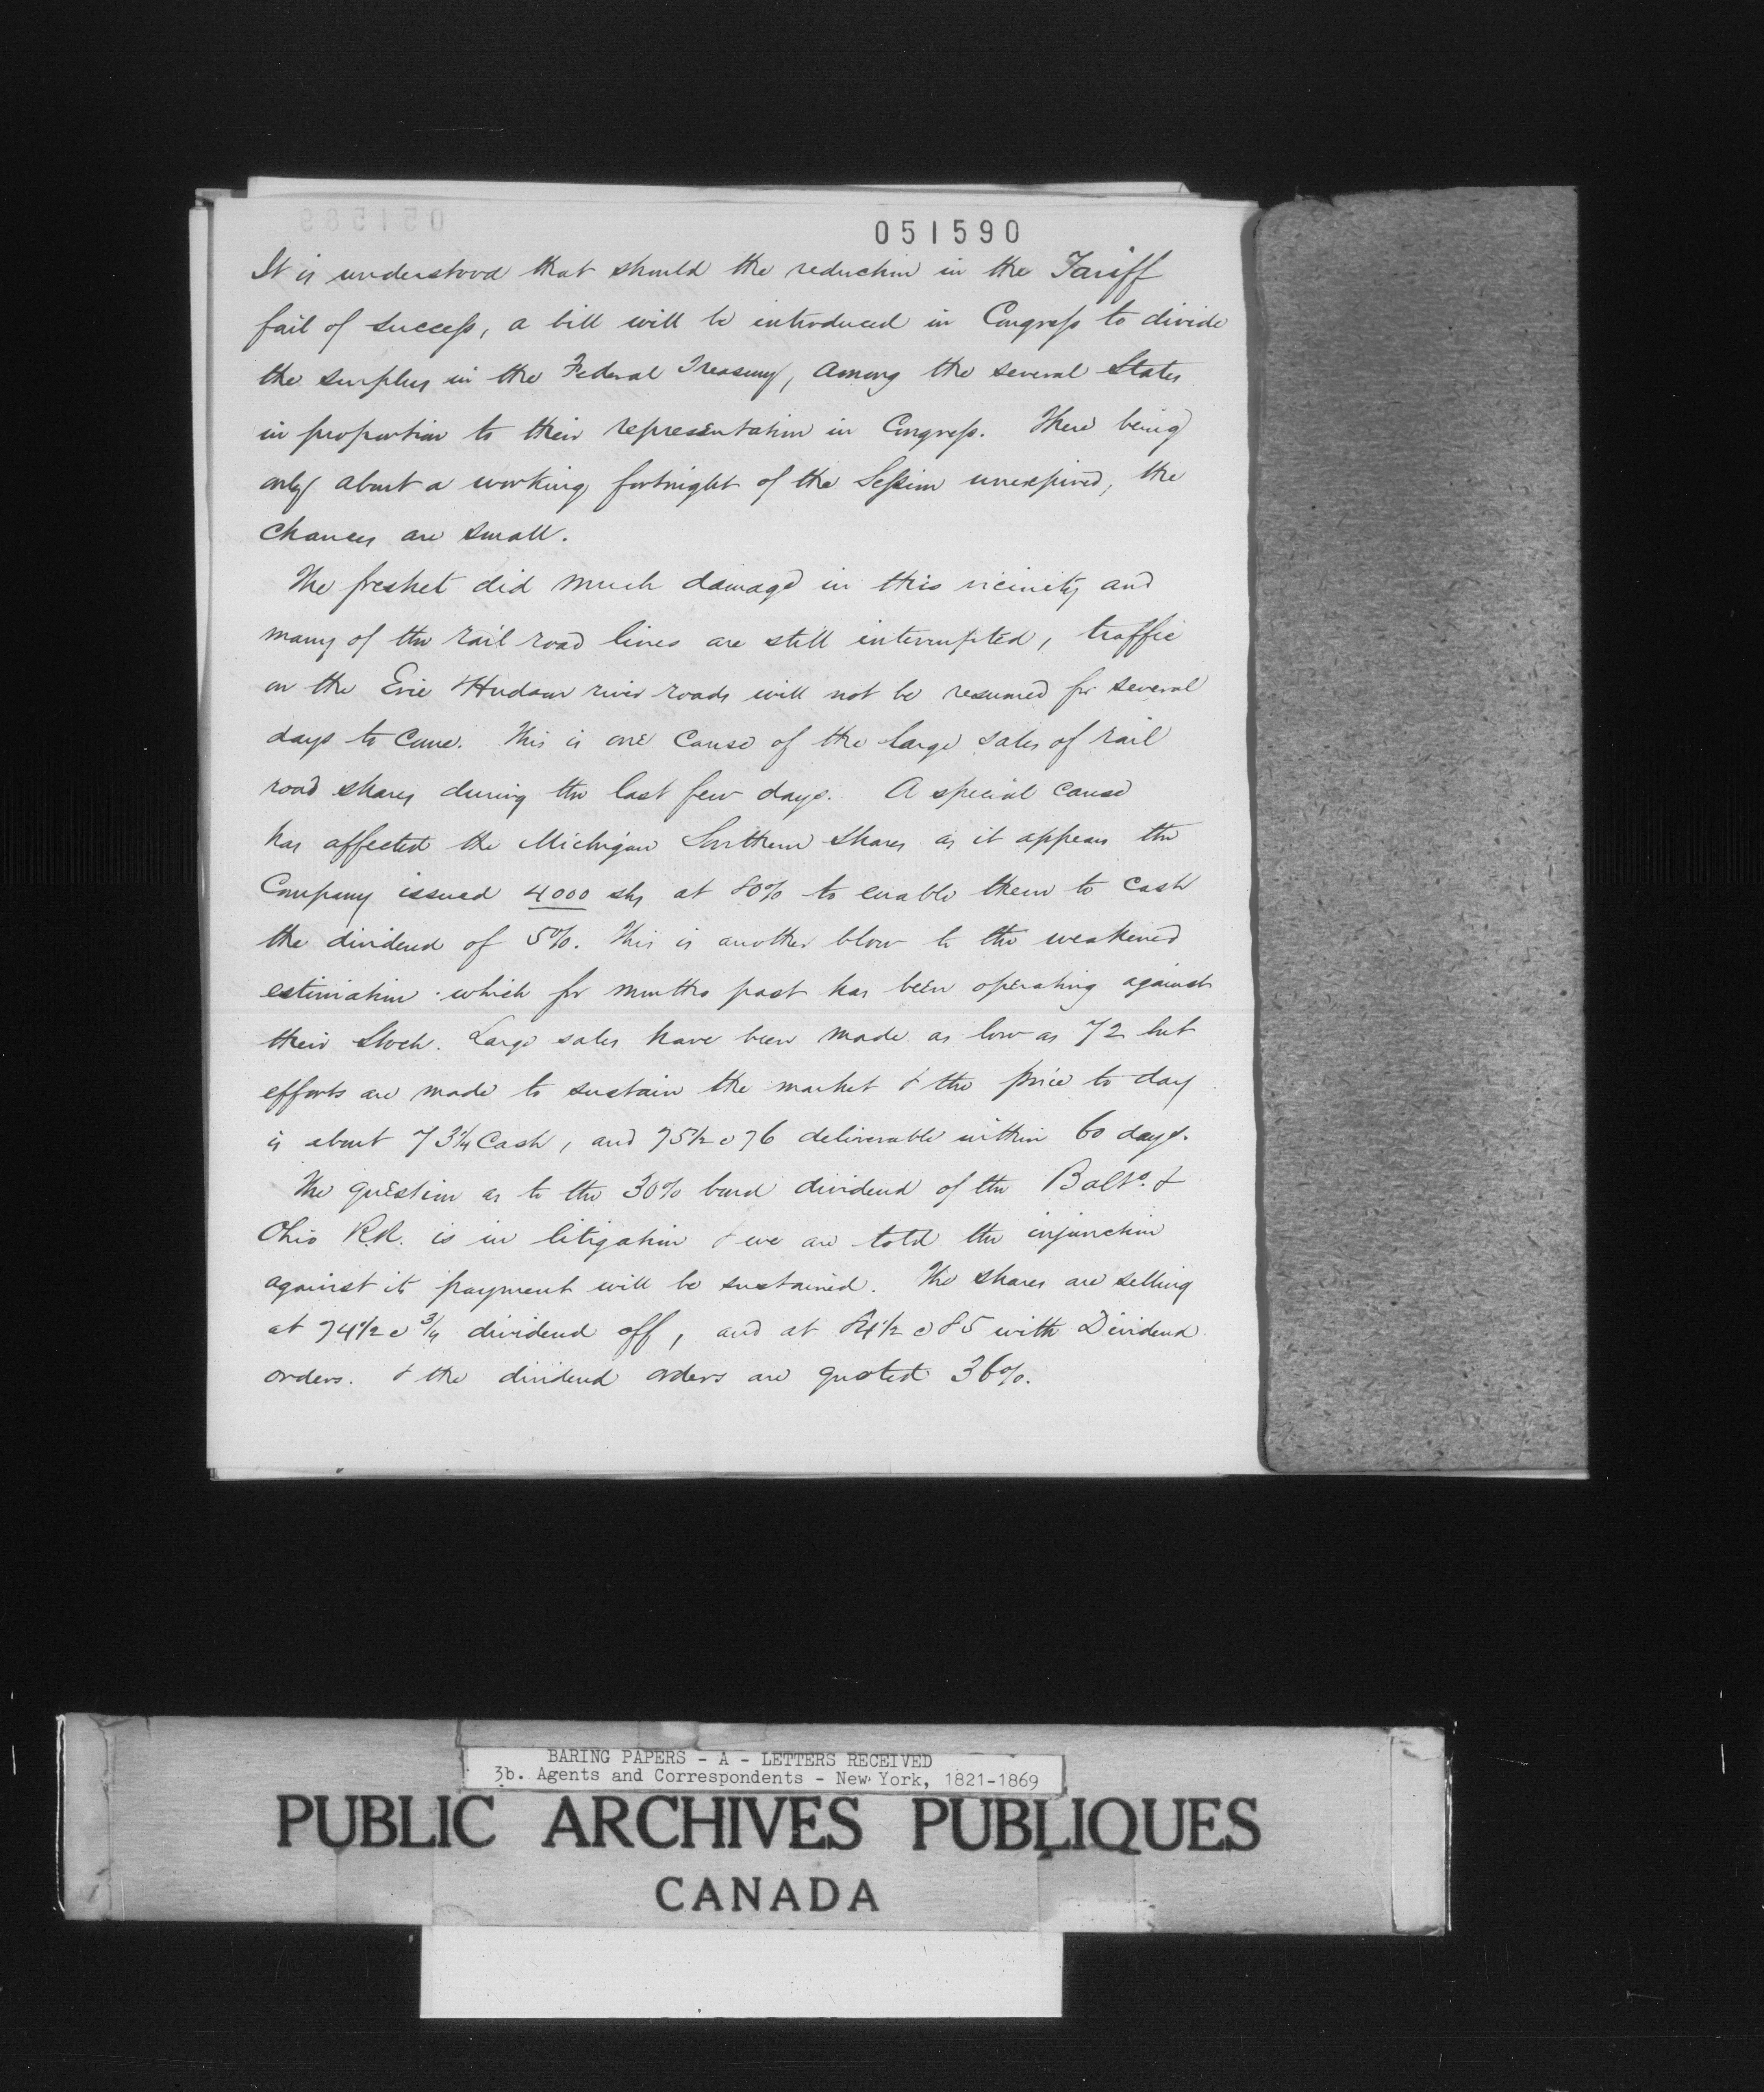 051590
It is understood that should the reduction in the Tariff
fail of success, a bill will be introduced in Congress to divide
the surplus in the Federal Treasury, among the several States
in proportion to their representation in Congress. There being
only about a working fortnight of the Session unexpired, the
chances are small.
The freshet did much damage in this vicinity and
many of the rail road lines are still interrupted, traffic
on the Erie & Hudson river roads will not be resumed for several
days to come. This is one cause of the large sales of rail
road shares during the last few days. A special cause
has affected the Michigan Southern shares as it appears the
Company issued 4000 shs at 80% to enable them to cash
the dividend of 5%. This is another blow to the weakened
estimation which for months past has been operating against
their Stock. Large sales have been made as low as 72 but
efforts are made to sustain the market & the price to day
is about 73¼ Cash, and 75½ @ 76 deliverable within 60 days.
The question as to the 30% bond dividend of the Balto. &
Ohio R.R. is in litigation & we are told the injunction
against its payment will be sustained. The shares are selling
at 74½ @ ¾ dividend off, and at 84½ @ 85 with Dividend
orders. & the dividend orders are quoted 36%.
BARING PAPERS - A - LETTERS RECEIVED
3b. Agents and Correspondents - New York, 1821-1869
PUBLIC ARCHIVES PUBLIQUES
CANADA